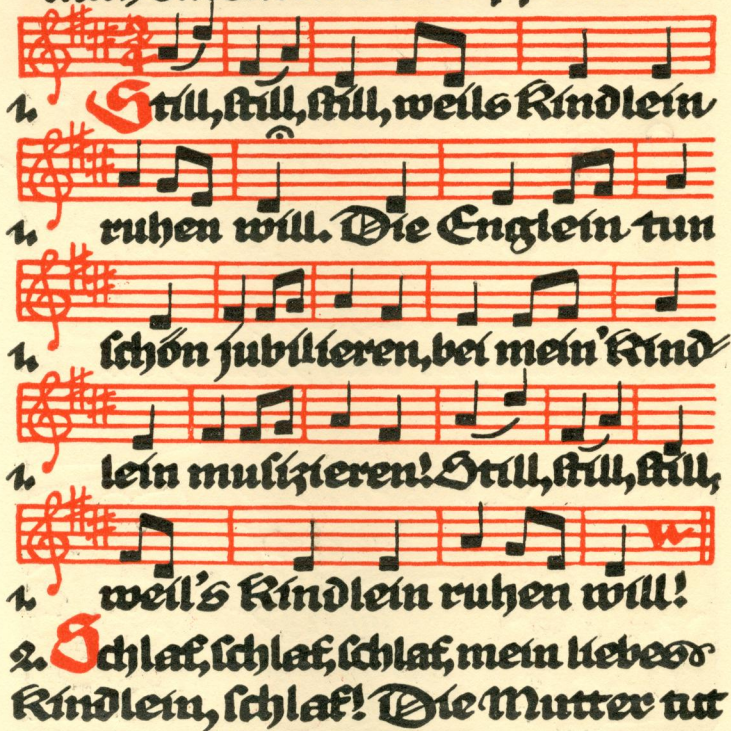 1. Still, still, still, weils Kindlein
1. ruhen will. Die Englein tun
1. schön jubilieren, bei mein' Kind-
1. lein musizieren! Still, still, still,
1. weil's Kindlein ruhen will!
2. Schlaf, schlaf, schlaf, mein liebes
Kindlein, schlaf! Die Mutter tut